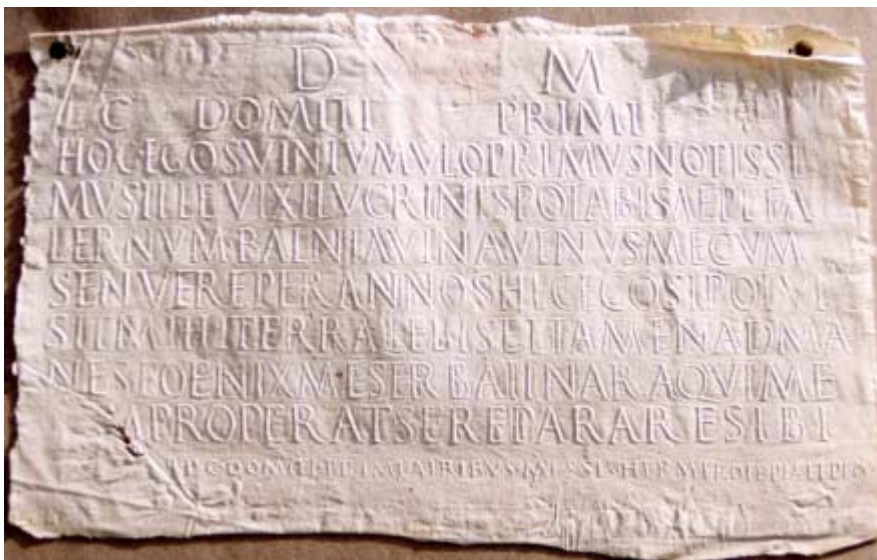 D M
L C DOMITI PRIMI
HOC EGO SV IN TVMVLO PRIMVS NOTISSI
MVS ILLE VIXI LVCRINIS POTABI SAEPE FA
LERNVM BALNIA VINA VENVS MECVM
SENVERE PER ANNOS HEC EGO SI POTVI
SIT MIHI TERRA LEBIS SET TAMEN AD MA
NES FOENIX ME SERBAT IN ARA QVI ME
PROPERAT SE REPARARE SIBI
C DOMITI PRIMI A TRIBVS HERMEROTE PIA ET PIO